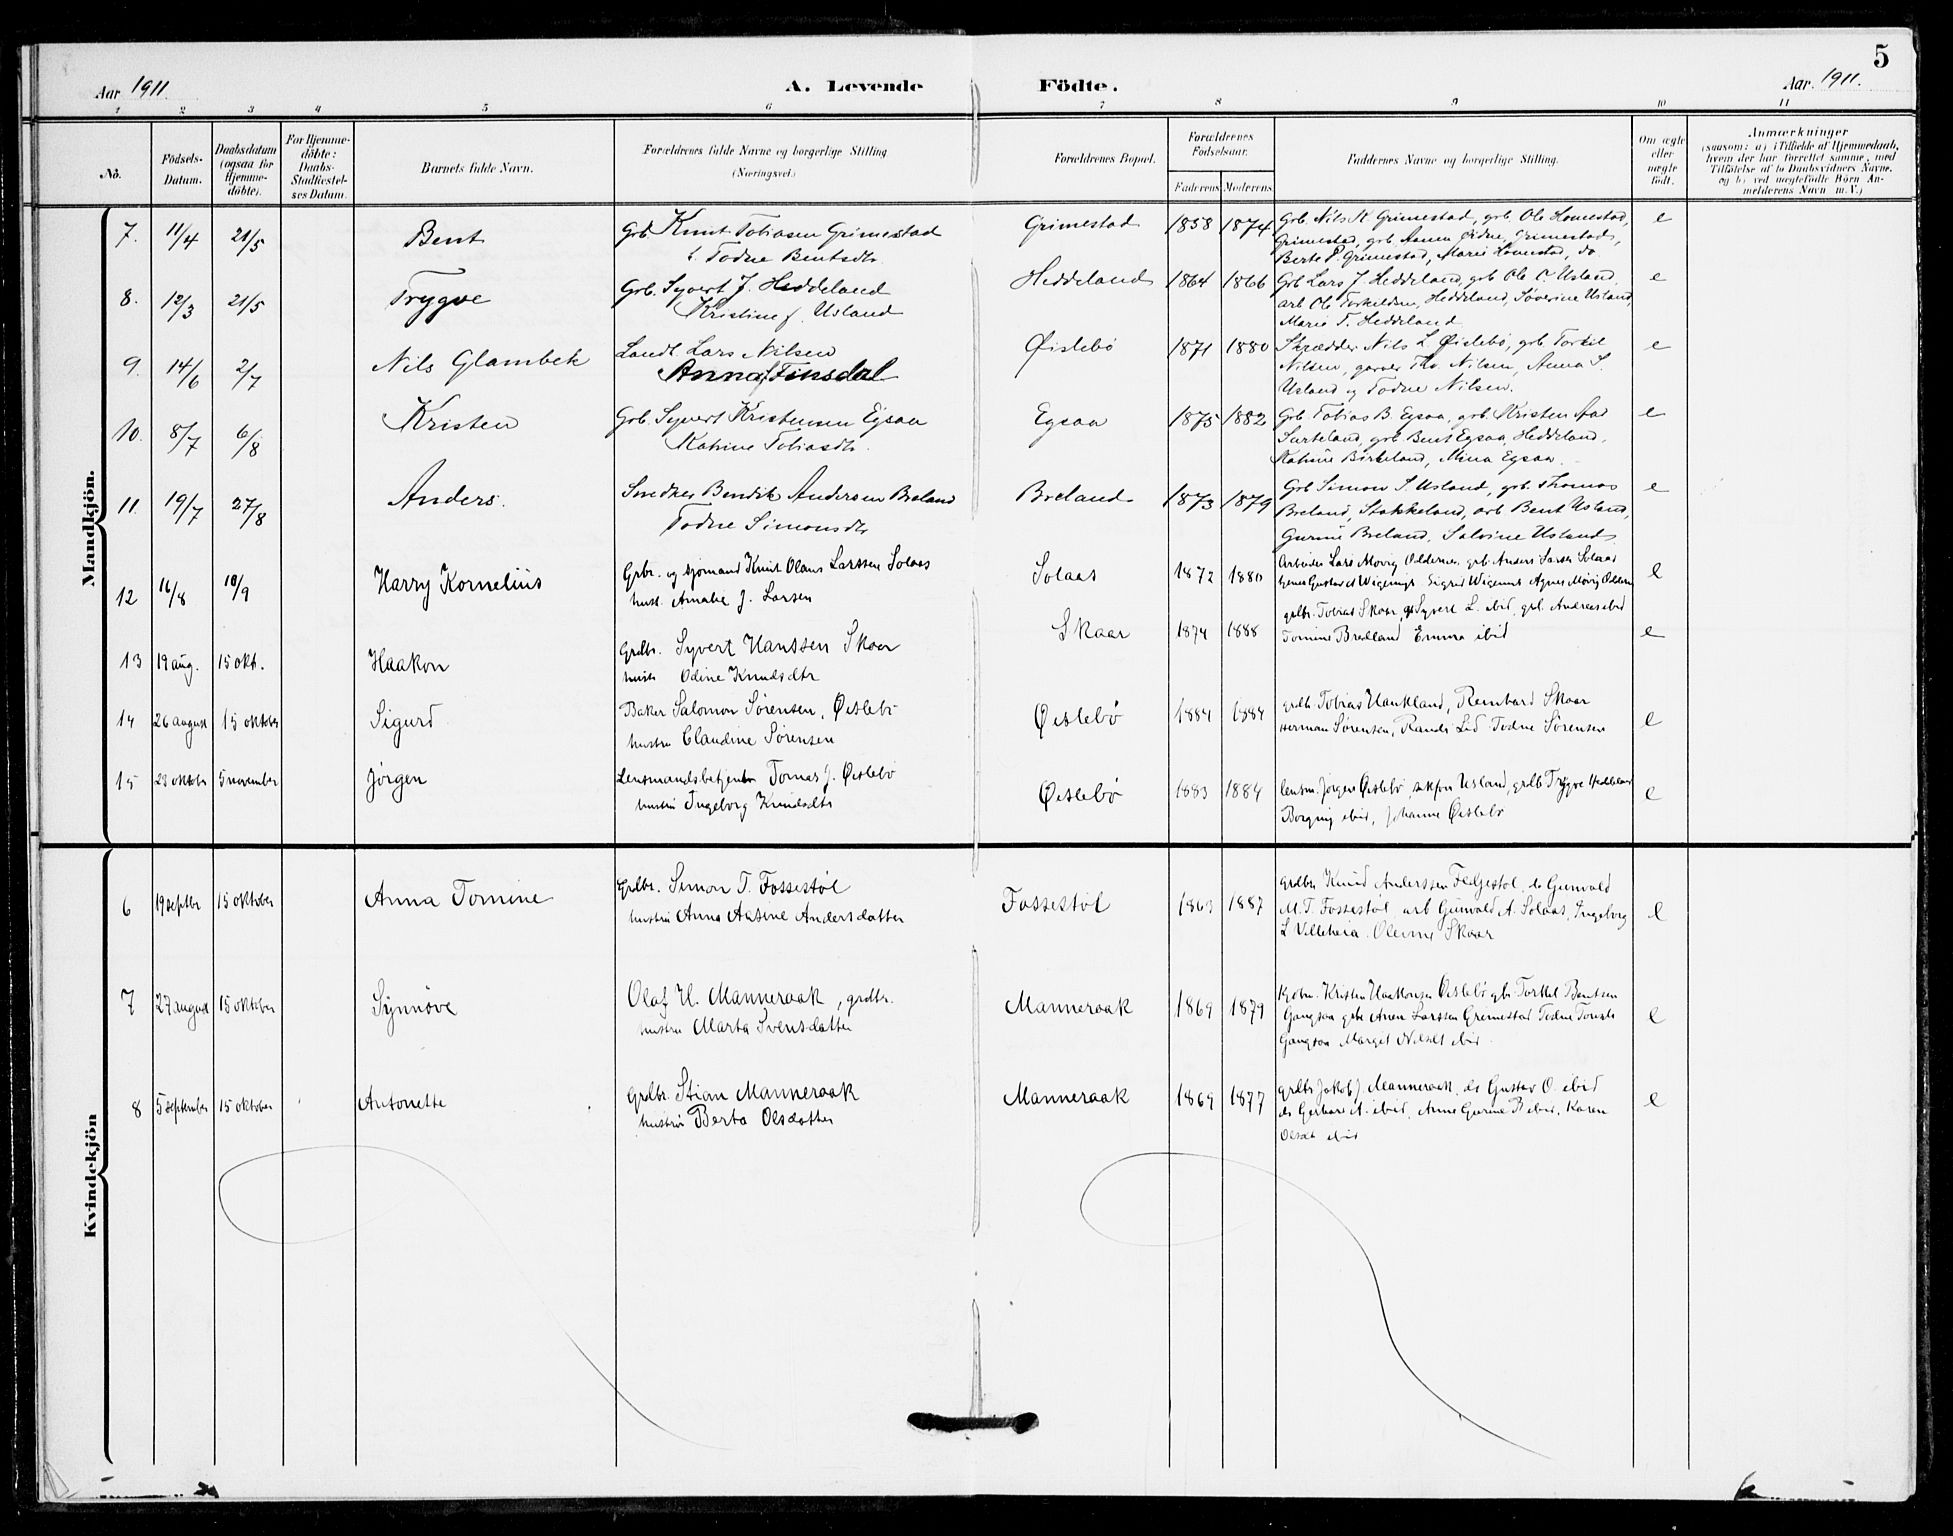 5
Aar 1911
A. Levende
Födte.
Aar. 1911.
1 2 3 4 5 6 7 8 9 10 11
No.
Födsels-Datum.
Daabsdatum (ogsaa for Hjemmedöbte).
For Hjemmedöbte: Daabs-Stadfæstelses Datum.
Barnets fulde Navn.
Forældrenes fulde Navne og borgerlige Stilling
(Næringsvei.)
Forældrenes Bopæl.
Forældrenes Födselsaar.
Faderens Moderens
Faddernes Navne og borgerlige Stilling.
Om ægte eller uægte födt.
Anmærkninger
(saasom: a) i Tilfælde af Hjemmedaab,
hvem der har forrettet samme, med
Tilföielse af to Daabsvidners Navne,
og b) ved uægtefödte Börn An-
melderens Navn m. V.)
Mandkjön.
7. 11/4 21/5 Bent Grb. Knut Tobiasen Grimestad Grimestad 1858 1874 Grb. Nils K. Grimestad, grb. Ole Homestad, e
Todne Bentsdtr.
Grimestad, grb. Aanen Øidne, Grimestad,
Berte P. Grimestad, Marie Homestad, do.
8. 12/3 21/5 Trygve Grb. Syvert J. Heddeland Heddeland 1864 1866 Grb. Lars J. Heddeland, grb. Ole O. Usland, e
Kristine f. Usland
arb. Ole Torkeldsen, Heddeland, Søverine Usland,
Marie T. Heddeland
9. 14/6 2/7 Nils Glambek Landh. Lars Nilsen Øislebö 1871 1880 Skrædder Nils L. Øislebö, grb. Torkil e
Anna f. Finsdal
Nilsen, garver Th. Nilsen, Anna S.
Usland og Todne Nilsen.
10. 8/7 6/8 Kristen Grb. Syvert Kristensen Egsaa Egsaa 1875 1882 Grb. Tobias B. Egsaa, grb. Kristen Aas e
Katrine Tobiasdtr.
grb. Bent Egsaa, Heddeland,
Katrine Birkeland, Mina Egsaa.
11. 19/7 27/8 Anders. Snedker Bendik Andersen Breland Breland 1873 1879 Grb. Simon S. Usland, grb. Thomas e
Todne Simonsdtr
Breland, Stokkeland, arb. Bent Usland,
Gurine Breland, Salvine Usland
12 16/8 10/9 Harry Kornelius Grbr. og sjömand Knut Olaus Larssen Solaas Solaas 1872 1880 Arbeider Lars Movig Oddernes, grb. Anders Larsen Solaas e
hust. Amalie J. Larsen
Sigrid Wigemyr Agnes Movig
13 19 aug. 15 okt. Haakon Grdbr. Syvert Hanssen Skaar Skaar 1874 1888 grdbr. Tobias Skaar, gb Syvert L. ibid, grb. Andreas ibid e
hustr Odine Knudsdtr
Tomine Bredland Emma ibid
14 26 august 15 oktober Sigurd Baker Salomon Sørensen, Øislebö Øislebö 1884 1884 grdb. Tobias Haukland, Reinhard Skaar e
hustru Claudine Sørensen
Herman Sørensen, Randi Lid Todne Sørensen
15 23 oktober 5 november Jörgen Lensmandsbetjent Tomas J. Øislebö Øislebö 1883 1884 lensm. Jørgen Øislebö, Usland, grdb Trygve Heddeland e
hustru Ingeborg Knudsdtr
Borgny ibid, Johanne Øislebö
Kvindekjön
6 19 septbr 15 oktober Anna Tomine Grdbr. Simon T. Fossestöl Fossestöl 1863 1887 grdbr Knud Anderssen Fedjestöl, do Gunvald e
hustru Anna Aasine Andersdatter
M. T. Fossestöl, arb Gunvald A. Solaas, Ingeborg
L Skaar
7 27 august 15 oktober Synnöve Olaf H. Manneraak, grdbr. Manneraak 1869 1879 Kristen Haakonsen Øislebö gb. Torkel Bentsen e
hustru Marta Svensdatter
Gangsaa grb Anen Larssen Grimestad Todne
Gangsaa Margit ibid
8 5 september 15 oktober Antonette Grdbr. Stian Manneraak Manneraak 1869 1877 grdbr Jakob J. Manneraak, do Gustav O. ibid e
hustru Berta Olsdatter
do Gerhard A. ibid, Anne Gurine ibid, Karen
Olsdt ibid